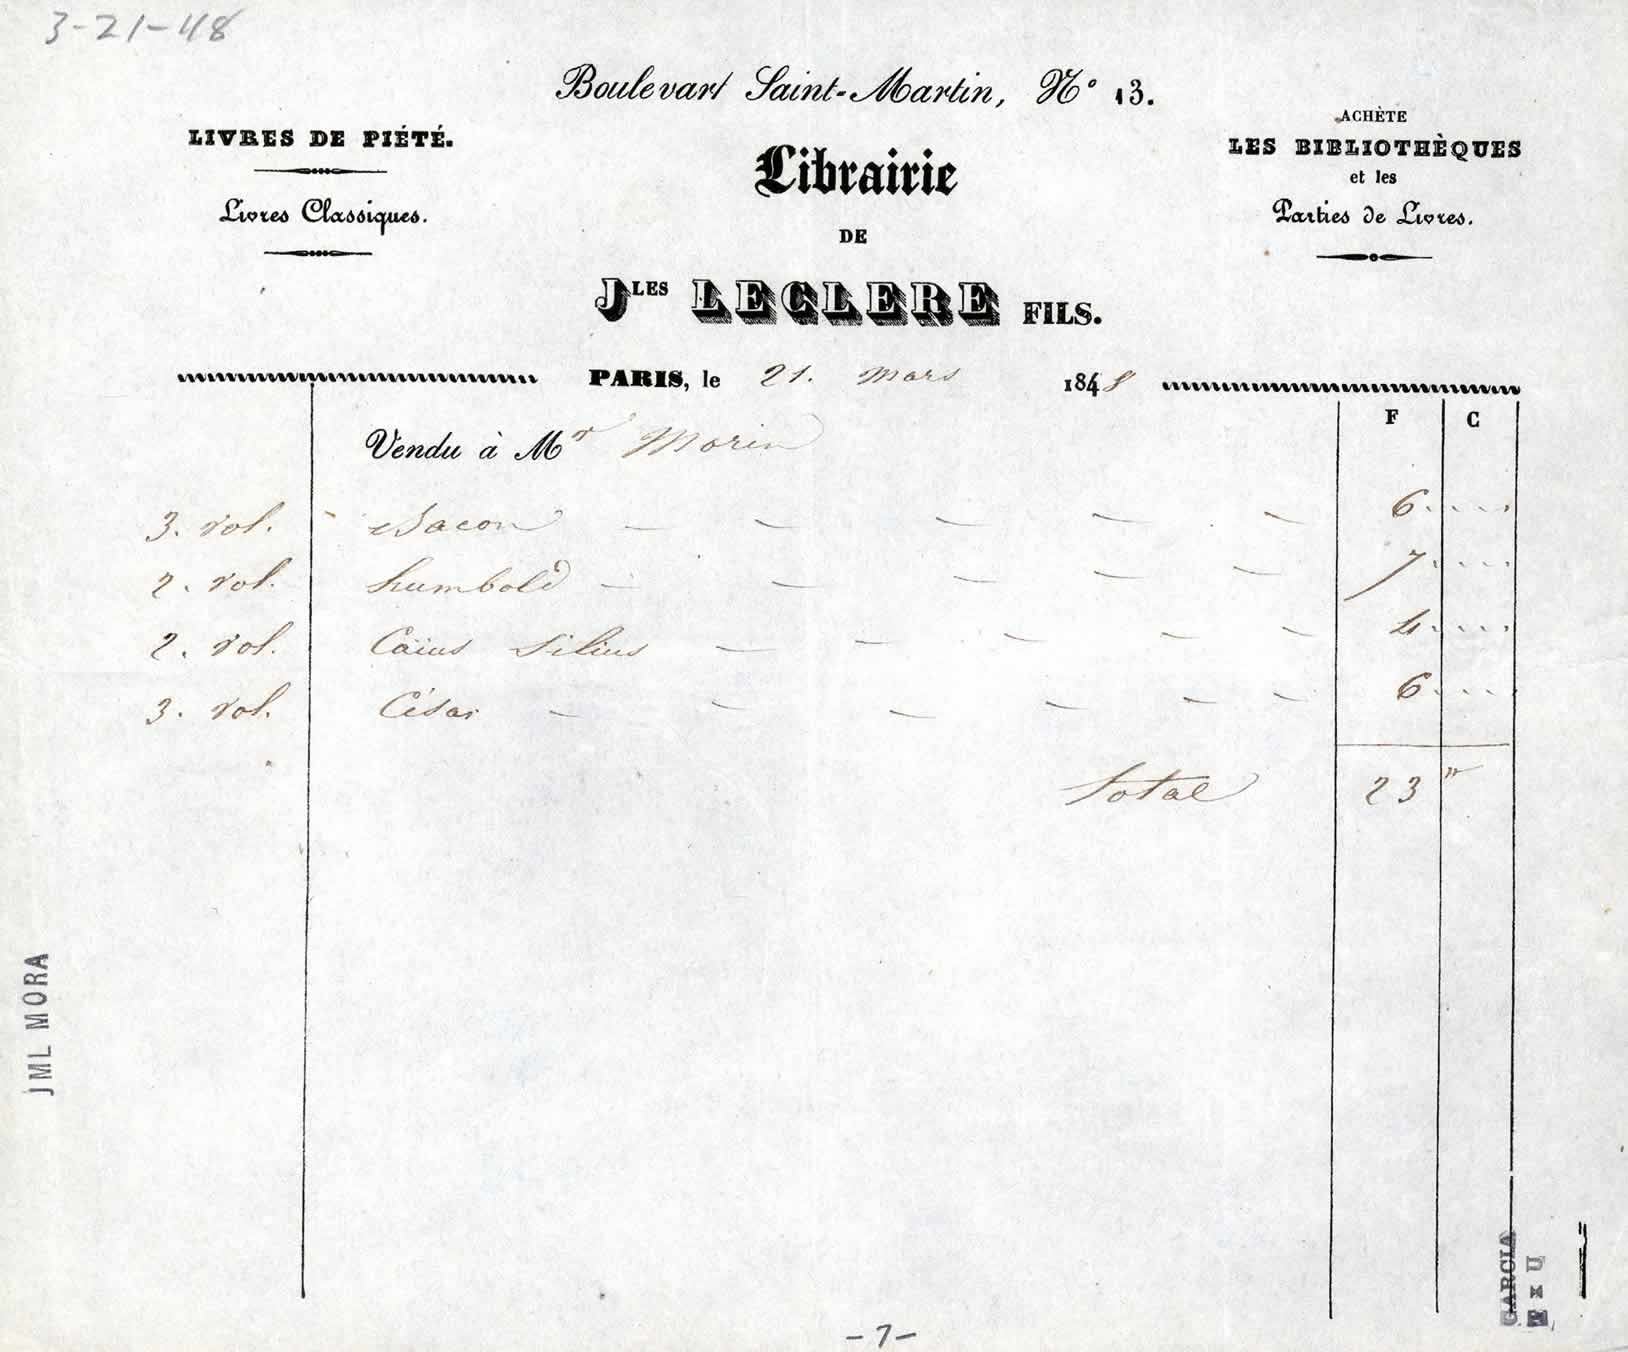 3-21-48
Boulevart Saint-Martin, N° 13.
LIVRES DE PIÉTÉ.
Livres Classiques.
Librairie
DE
Jles LECLERE FILS.
ACHÈTE
LES BIBLIOTHÈQUES
et les
Parties de Livres.
PARIS, le 21. mars 1848
F C
Vendu à Mr Morin
3. vol. Bacon — — — — — 6 . . . .
2. vol. humbold — — — — — 7 . . . .
2. vol. Caïus Silius — — — — — 4 . . . .
3. vol. César — — — — — — 6 . . . .
Total 23 "
JML MORA
GARCIA
-7-